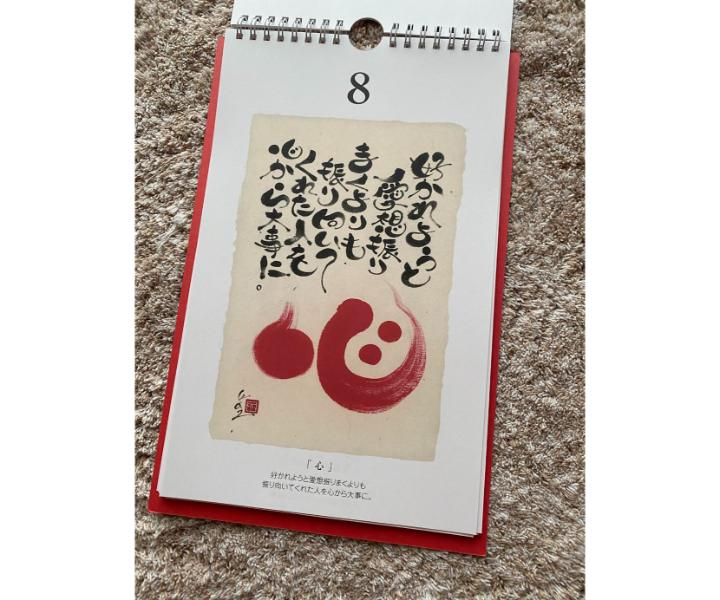 8
好かれようと
愛想振り
まくよりも
振り向いて
くれた人を
心から大事に。
心
「心」
好かれようと愛想振りまくよりも
振り向いてくれた人を心から大事に。